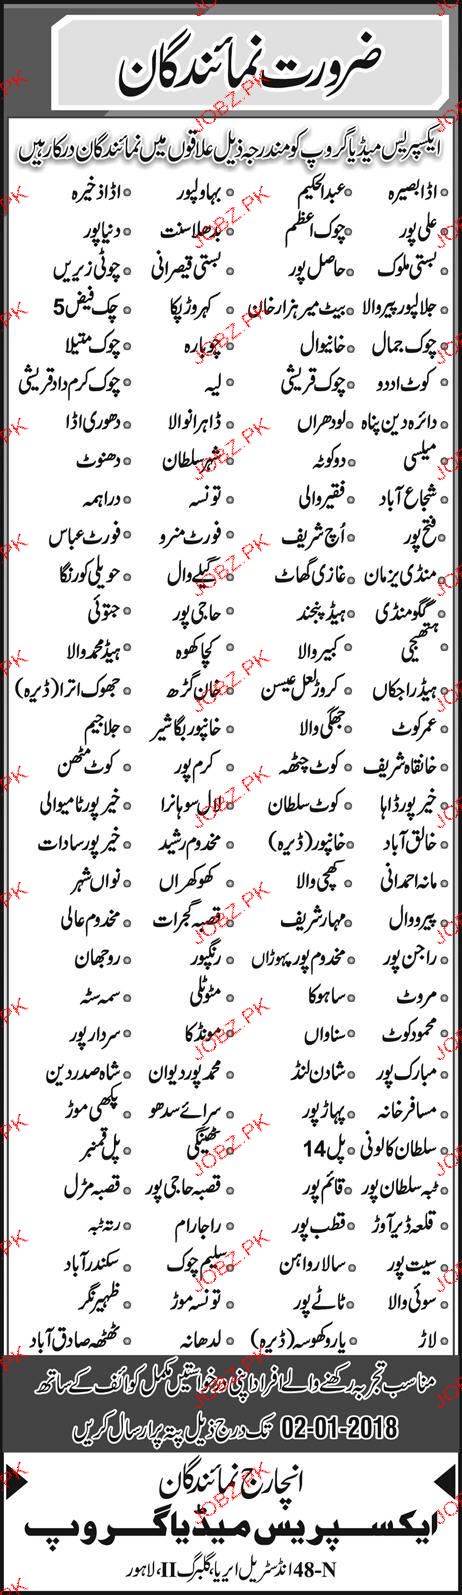 ضرورت نمائندگان
ایکسپریس میڈیا گروپ کو مندرجہ ذیل علاقوں میں نمائندگان درکار ہیں
اڈا بصیرہ عبدالحکیم بہاولپور اڈا ذخیرہ
علی پور چوک اعظم بدھلاسنت دنیاپور
بستی ملوک حاصل پور بستی قیصرانی چوٹی زیریں
جلالپور پیروالا بیٹ میر ہزار خان کہروڑ پکا چک فیض 5
چوک جمال خانیوال چوبارہ چوک متیلا
کوٹ ادو چوک قریشی لیہ چوک کرم داد قریشی
دائرہ دین پناہ لودھراں ڈاہرانوالا دھوری اڈا
میلسی دوکوٹہ شہر سلطان دھنوٹ
شجاع آباد فقیر والی تونسہ دراہمہ
فتح پور اُچ شریف فورٹ منرو فورٹ عباس
منڈی یزمان غازی گھاٹ گیلے وال حویلی کورنگا
گگو منڈی ہیڈ پنجند حاجی پور جتوئی
ہتھیجی کبیر والا کچا کھوہ ہیڈ محمد والا
ہیڈ راجکاں کروڑ لعل عیسن خان گڑھ جھوک اترا (ڈیرہ)
عمر کوٹ جھگی والا خانپور بگا شیر جلاجیم
خانقاہ شریف کوٹ چٹھہ کرم پور کوٹ مٹھن
خیر پور ڈاہا کوٹ سلطان لال سوہانرا خیر پور ٹامیوالی
خالق آباد خانپور (ڈیرہ) مخدوم رشید خیر پور سادات
مانہ احمدانی کھچی والا کھوکھراں نواں شہر
پیرووال مہار شریف قصبہ گجرات مخدوم عالی
راجن پور مخدوم پور پہوڑاں رنگپور روجھان
مروٹ ساہوکا مٹوٹلی سمہ سٹہ
محمود کوٹ سناواں مونڈکا سردار پور
مبارک پور شادن لنڈ محمد پور دیوان شاہ صدر دین
مسافر خانہ پہاڑ پور سرائے سدھو پکھی موڑ
سلطان کالونی پل 14 ٹھینگی پل قمبر
ٹبہ سلطان پور قائم پور قصبہ حاجی پور قصبہ مڑل
قلعہ ڈیرآوڑ قطب پور راجارام رتہ ٹبہ
سیت پور سالار واہن سلیم چوک سکندر آباد
سوئی والا ٹاٹے پور تونسہ موڑ ظہیر نگر
لاڑ یارو کھوسہ (ڈیرہ) لدھانہ ٹھٹھہ صادق آباد
مناسب تجربہ رکھنے والے افراد اپنی درخواستیں مکمل کوائف کے ساتھ
02-01-2018 تک درج ذیل پتہ پر ارسال کریں
انچارج نمائندگان
ایکسپریس میڈیا گروپ
48-N انڈسٹریل ایریا، گلبرگ II، لاہور
JOBZ.PK